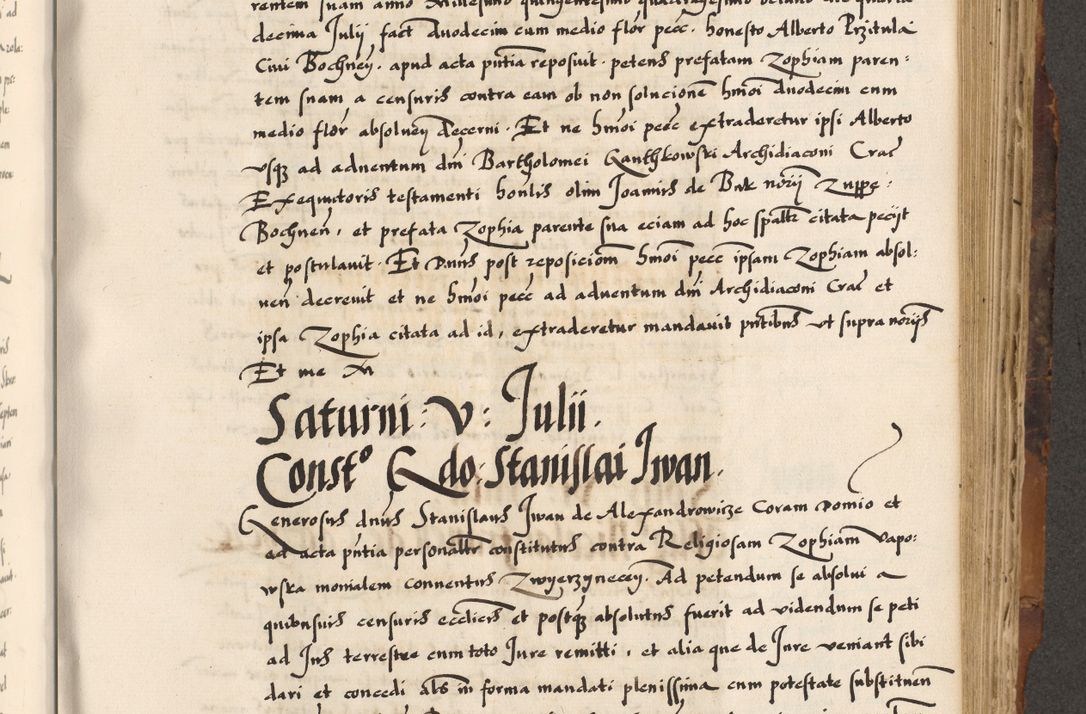 rentem suam anno Millesimo quingentesimo quadragesimo octavo die quarta
decima Julij fact duodecim cum medio flor pecc. honesto Alberto Przitula
Civi Bochneñ. apud acta pñtia reposuit. petens prefatam Zophiam paren:
tem suam a censuris contra eam ob non solucionem hmoi duodecim cum
medio flor absolueñ decerni. Et ne hmoi pecc extraderetur ipsi Alberto
vsq ad aduentum dñi Bartholomei Ganthkowski Archidiaconi Crac
Exequutoris testamenti honlis olim Joannis de Bnk norij Zuppe:
Bochneñ, et prefata Zophia parente sua eciam ad hoc spalr citata pecijt
et postulauit. Et D.uns post reposiciom hmoi pecc ipsam Zophiam absol:
ueñ decreuit et ne hmoi pecc ad aduentum dñi Archidiaconi Crac et
ipsa Zophia citata ad id, extraderetur mandauit pñtibus vt supra norijs
Et me
Saturni: V: Julii.
Const° Gdo: Stanislai Jwan.
Generosus dnus Stanislaus Jwan de Alexandrowicze Coram Domio et
ad acta pñtia personalr constitutus contra Religiosam Zophiam Vapo:
wska monialem conuentus Zwyerzyneceñ. Ad petendum se absolui a
quibusuis censuris ecclieis et postq absolutus fuerit ad videndum se peti
ad Jus terrestre cum toto Jure remitti, et alia que de Jure veniant sibi
dari et concedi als in forma mandati plenissima cum potestate substitueñ